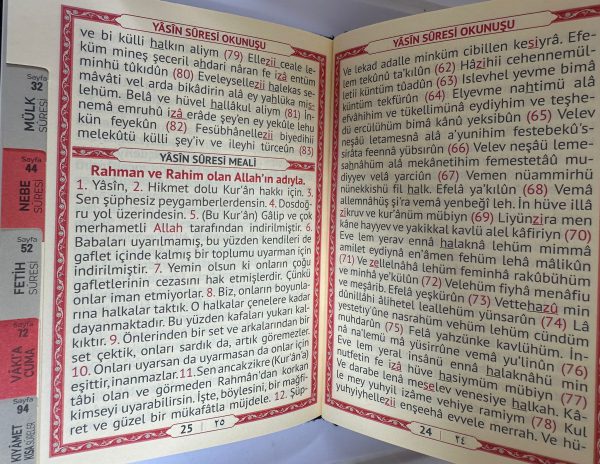 YÂSÎN SÛRESİ OKUNUŞU
ve lekad adalle minküm cibillen kesiyrâ. Efe-
lem tekûnû ta'kılûn (62) Hâzihii cehennemül-
letii küntüm tûadûn (63) Islevhel yevme bimâ
küntüm tekfürûn (64) Elyevme nahtimü alâ
efvâhihim ve tükellimünâ eydiyhim ve teşhe-
dü ercülühüm bimâ kânû yeksibûn (65) Velev
neşâü letamesnâ alâ a'yunihim festebekû's-
sırâta feennâ yübsırûn (66) Velev neşâü leme-
sahnâhüm alâ mekânetihim femestetâû mu-
diyyev velâ yarciûn (67) Vemen nüammirhü
nünekkishü fil halk. Efelâ ya'kılûn (68) Vemâ
allemnâhüş şi'ra vemâ yenbeğî leh. İn hüve illâ
zikruv ve kur'ânüm mübiyn (69) Liyünzira men
kâne hayyev ve yakikkal kavlü alel kâfiriyn (70)
Eve lem yerav ennâ halaknâ lehüm mimmâ
amilet eydiynâ en'âmen fehüm lehâ mâlikûn
(71) Ve zellelnâhâ lehüm feminhâ rakûbühüm
ve minhâ ye'külûn (72) Velehüm fiyhâ menâfiu
ve meşârib. Efelâ yeşkürûn (73) Vettehazû min
dûnillâhi âlihetel leallehüm yünsarûn (74) Lâ
yestetıy'ûne nasrahüm vehüm lehüm cündüm
muhdarûn (75) Felâ yahzünke kavlühüm. İn-
nâ na'lemü mâ yüsirrûne vemâ yu'linûn (76)
Eve lem yeral insânü ennâ halaknâhü min
nutfetin fe izâ hüve hasiymüm mübiyn (77)
Ve darabe lenâ meselev venesiye halkah. Kâ-
le mey yuhyil izâme vehiye ramiym (78) Kul
yuhyiyhellezii enşeehâ evvele merrah. Ve hü-
24 ٢٤
YÂSÎN SÛRESİ OKUNUŞU
ve bi külli halkın aliym (79) Ellezii ceale le-
küm mineş şeceril ahdari nâran fe izâ entüm
minhü tûkıdûn (80) Eveleysellezii halekas se-
mâvâti vel arda bikâdirin alâ ey yahlüka mis-
lehüm. Belâ ve hüvel hallâkul aliym (81) İn-
nemâ emruhû izâ erâde şey'en ey yekûle lehu
kün feyekûn (82) Fesübhânellezii biyedihii
melekûtü külli şey'iv ve ileyhi türceûn (83)
YÂSÎN SÛRESİ MEALİ
Rahman ve Rahim olan Allah'ın adıyla.
1. Yâsîn, 2. Hikmet dolu Kur'ân hakkı için. 3.
Sen şüphesiz peygamberlerdensin. 4. Dosdoğ-
ru yol üzerindesin. 5. (Bu Kur'ân) Gâlip ve çok
merhametli Allah tarafından indirilmiştir. 6.
Babaları uyarılmamış, bu yüzden kendileri de
gaflet içinde kalmış bir toplumu uyarman için
indirilmiştir. 7. Yemin olsun ki onların çoğu
gafletlerinin cezasını hak etmişlerdir. Çünkü
onlar iman etmiyorlar. 8. Biz, onların boyunla-
rına halkalar taktık. O halkalar çenelere kadar
dayanmaktadır. Bu yüzden kafaları yukarı kal-
kıktır. 9. Önlerinden bir set ve arkalarından bir
set çektik, onları sardık da, artık göremezler.
10. Onları uyarsan da uyarmasan da onlar için
eşittir, inanmazlar. 11. Sen ancak zikre (Kur'ân'a)
tâbi olan ve görmeden Rahmân'dan korkan
kimseyi uyarabilirsin. İşte, böylesini, bir mağfi-
ret ve güzel bir mükafâtla müjdele. 12. Şüp-
25 ٢٥
Sayfa
32
MÜLK
SÛRESİ
Sayfa
44
NEBE
SÛRESİ
Sayfa
52
FETİH
SÛRESİ
Sayfa
72
VÂKIA
CUMA
Sayfa
94
KIYÂMET
KISA SÛRELER